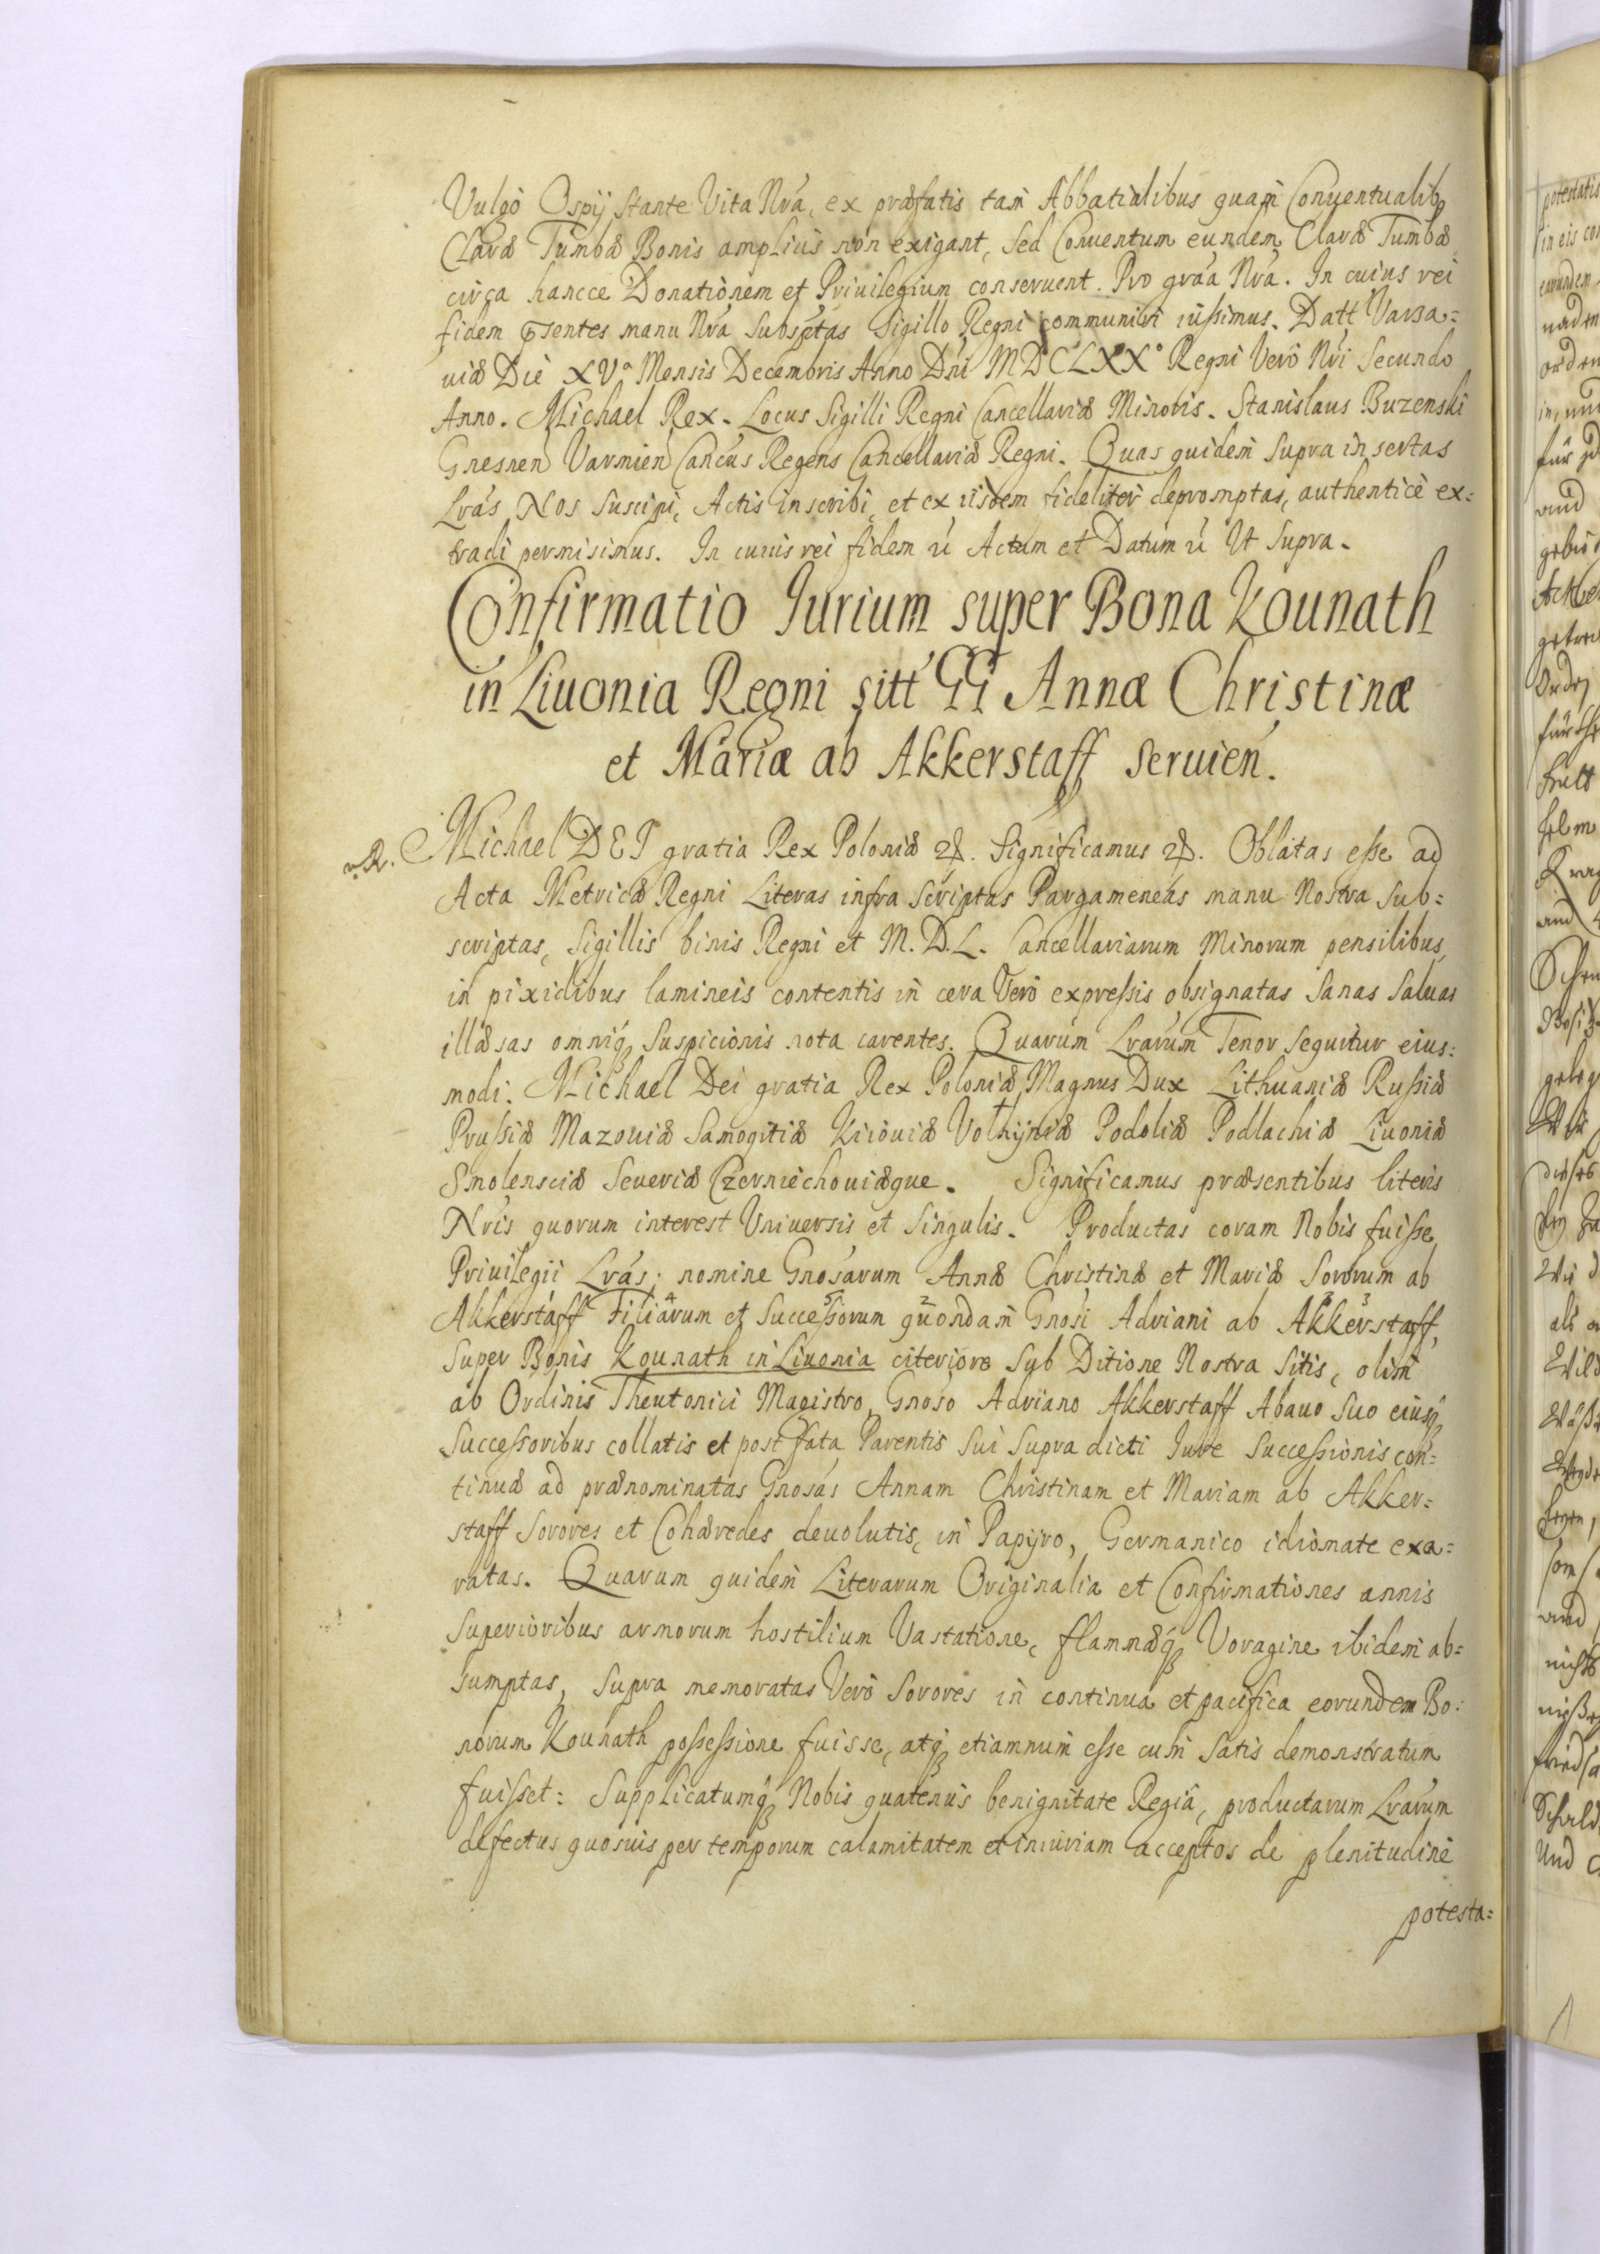 Vulgò Ospij stante Vita Nrá, ex præfatis tam Abbatialibus quam Conuentualibq
Claræ Tumbæ Bonis amplius non exigant, sed Conuentum eundem Claræ Tumbæ
circa hancce Donationem et Priuilegium conseruent. Pro gráa Nrá. In cuius rei
fidem ꝑsentes manu Nrá subsc̃tas Sigillo Regni communiri iussimus. Datt Varsa=
uiæ Die XVa Mensis Decembris Anno Dńi MDCLXX° Regni Verò Nri Secundo
Anno. Michael Rex. Locus Sigilli Regni Cancellariæ Minoris. Stanislaus Buzenski
Gnesnen Varmien Cancús Regens Cancellariæ Regni. Quas quidem supra insertas
Lrás Nos suscipi, Actis inscribi, et ex iisdem fideliter depromptas, authenticè ex=
tradi permisimus. In cuius rei fidem ú Actum et Datum ú Ut supra.
Confirmatio Jurium super Bona Kounath
in Liuonia Regni sitt GG Annæ Christinæ
et Mariæ ab Akkerstaff seruien.
v.R. Michael DEI gratia Rex Poloniæ &. Significamus &. Oblatas esse ad
Acta Metricæ Regni Literas infra scriptas Pargameneas manu Nostra sub=
scriptas, Sigillis binis Regni et M.D.L. Cancellariarum Minorum pensilibus,
in pixidibus lamineis contentis in cera Verò expressis obsignatas sanas saluas
illæsas omniq suspicionis nota carentes. Quarum Lrarum Tenor sequitur eius=
modi: Michael Dei gratia Rex Poloniæ Magnus Dux Lithuaniæ Russiæ
Prussiæ Mazouiæ Samogitiæ Kiiouiæ Volhijniæ Podoliæ Podlachiæ Liuoniæ
Smolensciæ Seueriæ Czerniechouiæque. Significamus præsentibus literis
Nris quorum interest Vniuersis et singulis. Productas coram Nobis fuisse
Priuilegii Lrás, nomine Gnosarum Annæ Christinæ et Mariæ Sororum ab
Akkerstaff Filiarum et Successorum quondam Gnosi Adriani ab Akkerstaff,
super Bonis Kounath in Liuonia citeriore sub Ditione Nostra sitis, olim
ab Ordinis Theutonici Magistro, Gnoso Adriano Akkerstaff Abauo suo eiusq
Successoribus collatis et post fata Parentis sui supra dicti Iure Successionis con=
tinuæ ad prænominatas Gnosas Annam Christinam et Mariam ab Akker=
staff Sorores et Cohæredes deuolutis, in Papijro, Germanico idiomate exa=
ratas. Quarum quidem Literarum Originalia et Confirmationes annis
superioribus armorum hostilium Vastatione, flammæq Voragine ibidem ab=
sumptas, supra memoratas Verò Sorores in continua et pacifica eorundem Bo=
norum Kounath possessione fuisse, atq etiamnum esse cum satis demonstratum
fuisset: Supplicatumq Nobis quatenus benignitate Regiâ, productarum Lrarum
defectus quosuis per temporum calamitatem et iniuriam acceptos de plenitudine
potesta=